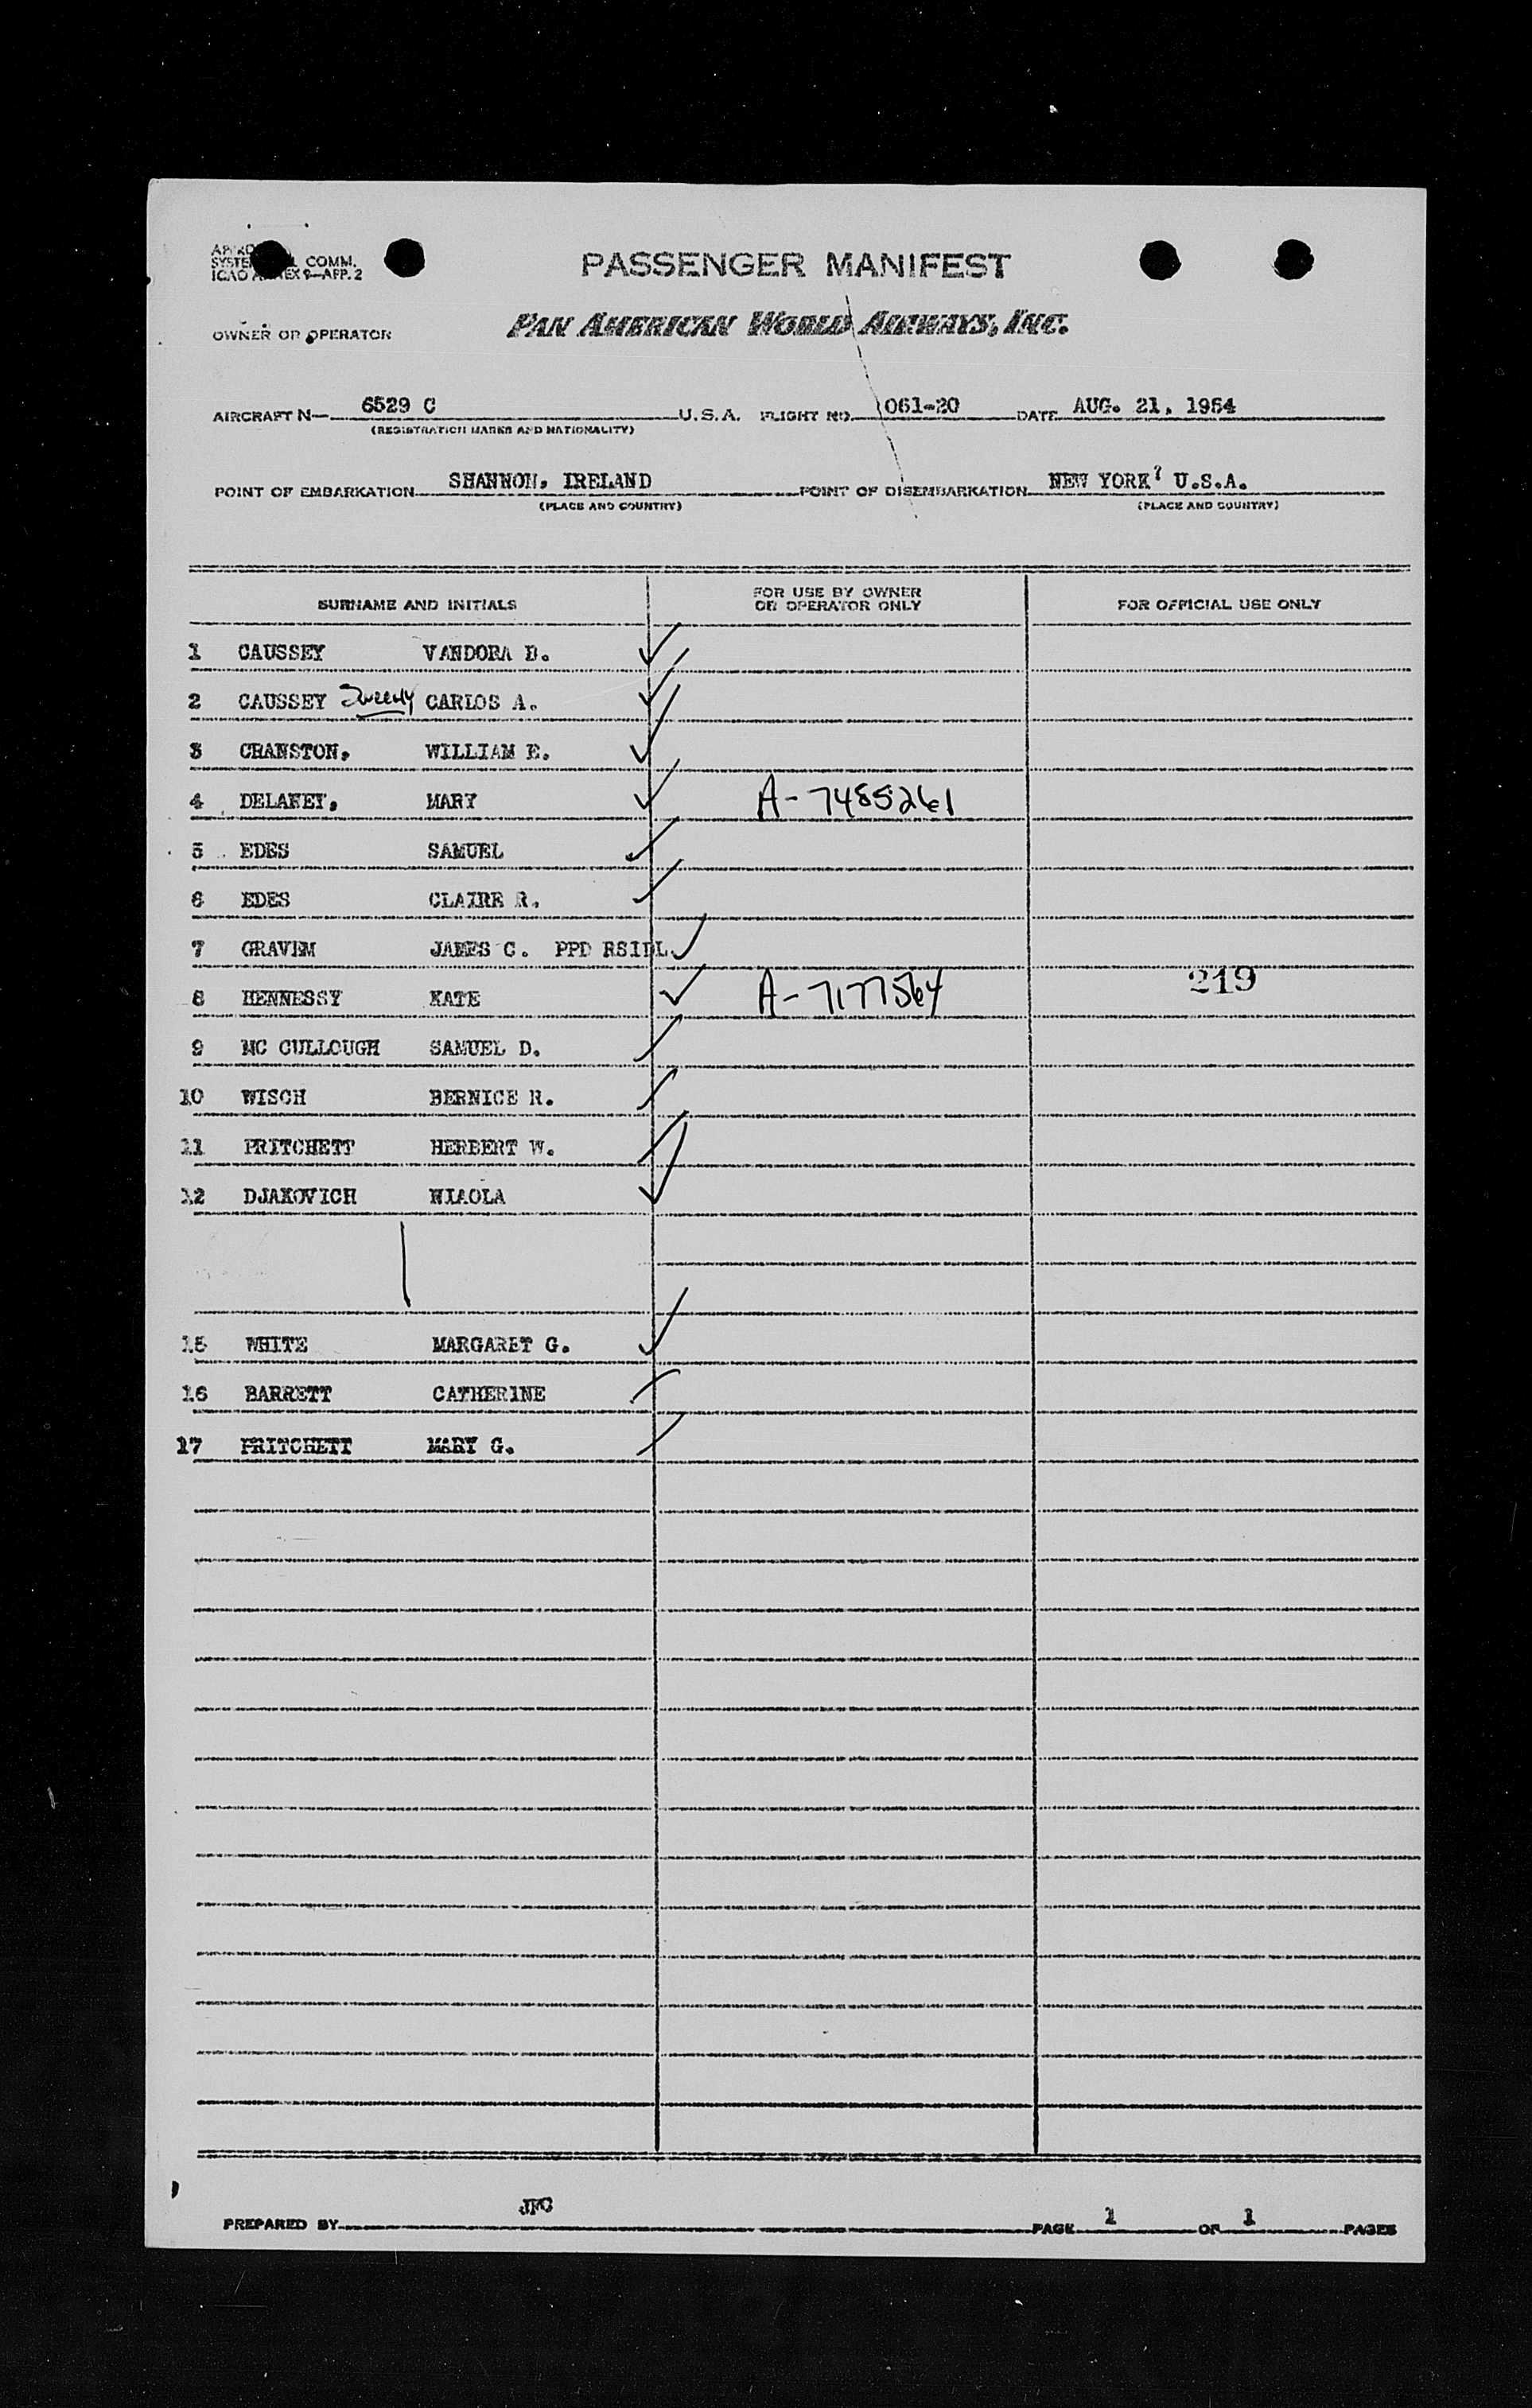 COMM.
ICAO ANNEX 9—APP. 2
PASSENGER MANIFEST
OWNER OR OPERATOR PAN AMERICAN WORLD AIRWAYS, INC.
AIRCRAFT N— 6529 C U.S.A. FLIGHT NO. 061-20 DATE AUG. 21, 1954
(REGISTRATION MARKS AND NATIONALITY)
POINT OF EMBARKATION SHANNON, IRELAND POINT OF DISEMBARKATION NEW YORK? U.S.A.
(PLACE AND COUNTRY) (PLACE AND COUNTRY)
SURNAME AND INITIALS FOR USE BY OWNER OR OPERATOR ONLY FOR OFFICIAL USE ONLY
1 CAUSSEY VANDORA D.
2 CAUSSEY CARLOS A.
3 CRANSTON, WILLIAM E.
4 DELANEY, MARY A-7485261
5 EDES SAMUEL
6 EDES CLAIRE R.
7 GRAVEM JAMES C. PPD RSIDL
8 HENNESSY KATE A-7177564 219
9 MC CULLOUGH SAMUEL D.
10 WISCH BERNICE R.
11 PRITCHETT HERBERT W.
12 DJAKOVICH
15 WHITE MARGARET G.
16 BARRETT CATHERINE
17 PRITCHETT MARY G.
PREPARED BY JFC PAGE 1 OF 1 PAGES